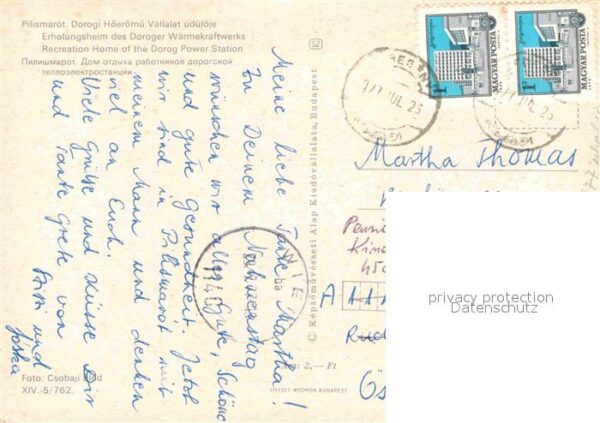 Pilismarót. Dorogi Hőerőmű Vállalat üdülője
Erholungsheim des Doroger Wärmekraftwerks
Recreation Home of the Dorog Power Station
Пилишмарот. Дом отдыха работников дорогской
теплоэлектростанции
Meine liebe Tante Martha!
Zu Deinem Nahmenstag
wünschen wir alles Gute, Schöne
und gute Gesundheit. Jetzt
wir sind in Pilismarót mit
meinem Mann und denken
viel an Euch.
Viele Grüße und Küsse Dir
und Tante Grete von
und
Joska
Foto: Csobaji Előd
XIV.-5/762.
© Képzőművészeti Alap Kiadóvállalata, Budapest
Ára: 2,— Ft
BUDAPEST
MAGYAR POSTA
MAGYAR POSTA
77 JUL 25
Martha Thomas
privacy protection
Datenschutz